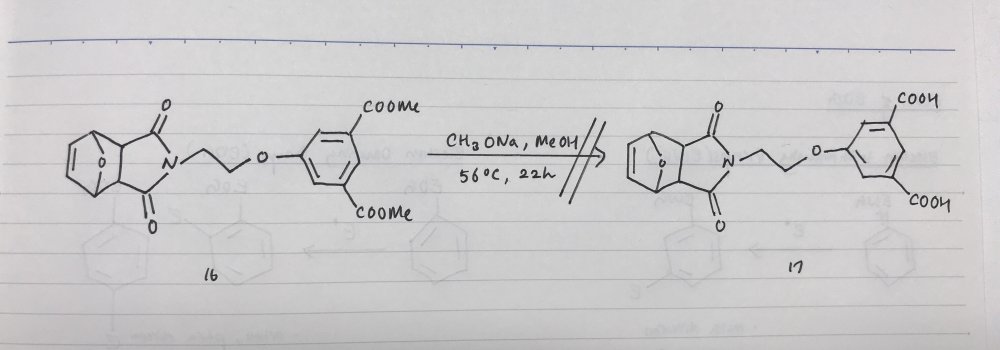 O
COOMe
O
N
O
COOMe
O
16
CH3ONa, MeOH
56°C, 22h
O
COOH
O
N
O
COOH
O
17